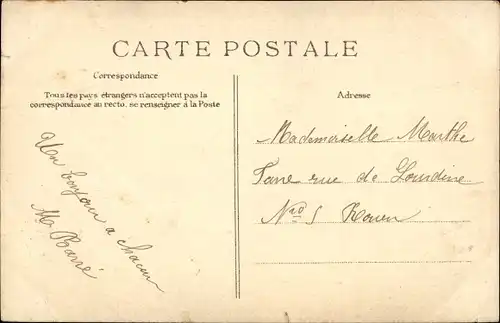 CARTE POSTALE
Correspondance
Tous les pays étrangers n'acceptent pas la
correspondance au recto, se renseigner à la Poste
Un bonjour a chacun
M. Barré
Adresse
Mademoiselle Marthe
rue de
N° 5 Rouen